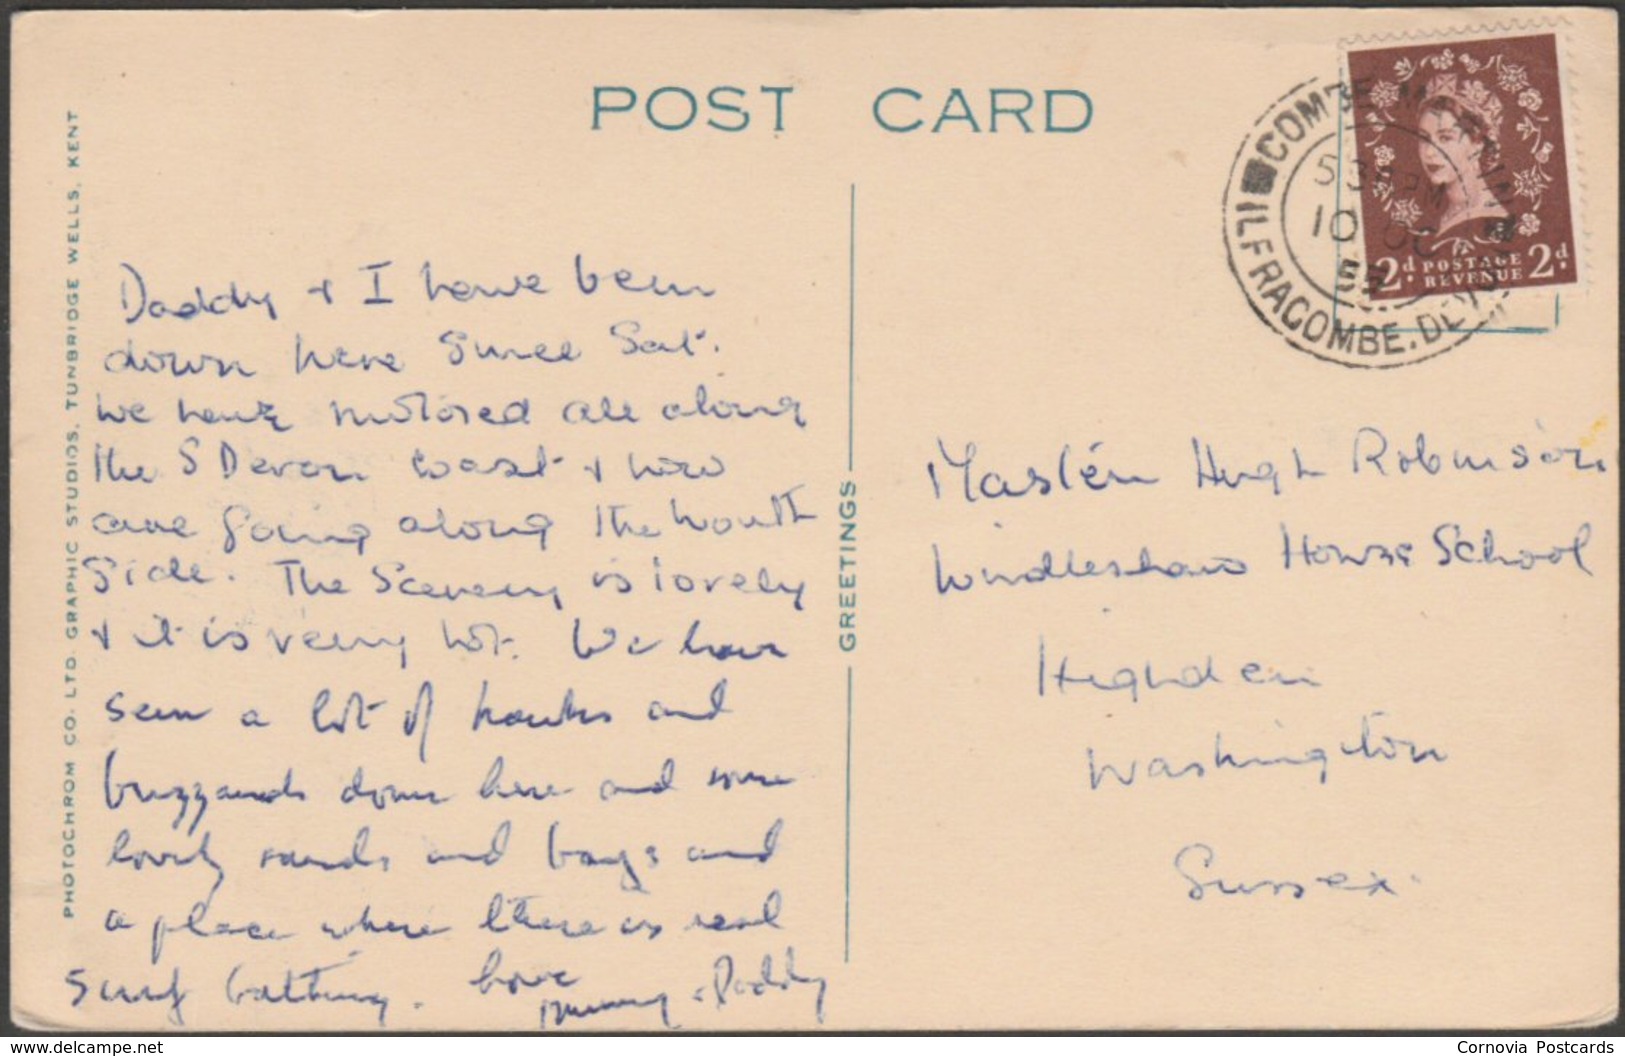 POST CARD
PHOTOCHROM CO. LTD. GRAPHIC STUDIOS, TUNBRIDGE WELLS, KENT
Daddy + I have been
down here since Sat.
We have motored all along
the S Devon coast + now
are going along the North
side. The Scenery is lovely
+ it is very hot. We have
seen a lot of hawks and
buzzards down here and some
lovely sands and bays and
a place where there is real
surf bathing. Love
Mummy + Daddy
GREETINGS
COMBE MARTIN
ILFRACOMBE. DEVON
10 OC
2d POSTAGE REVENUE 2d
Master Hugh Robinson
Windlesham House School
Highden
Washington
Sussex.
www.delcampe.net
Cornovia Postcards